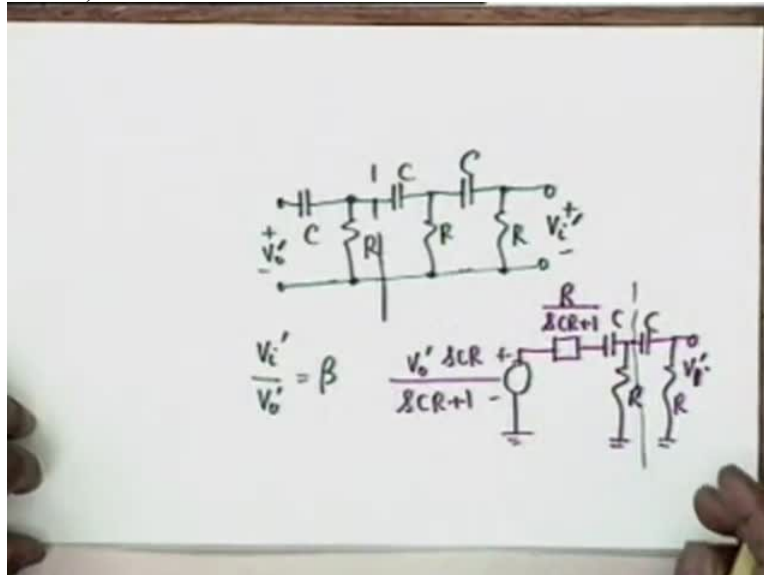 C C
+ V₀' -
C R R R
+ Vᵢ' -
Vᵢ' / V₀' = β
V₀' sCR / sCR+1
+ -
R / sCR+1
C C
R R
Vᵢ'